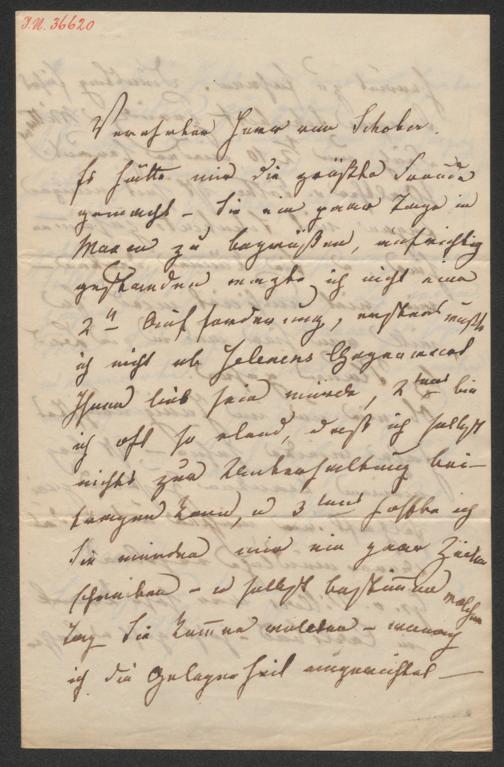 J.N. 36620
Verehrter Herr von Schober.
Es hätte mir die größte Freude
gemacht – Sie ein paar Tage in
Maxen zu begrüßen, aufrichtig
gestanden wagte ich nicht eine
2t Aufforderung, erstens wußte
ich nicht ob Helenens Gegenwart
Ihnen lieb sein würde, 2tens bin
ich oft so elend, daß ich selbst
nichts zur Unterhaltung bei-
tragen kann, u 3tens hoffte ich
Sie würden mir ein paar Zeilen
schreiben – u selbst bestimmen welchen
Tag Sie kommen wollten – wonach
ich die Gelegenheit eingerichtet –